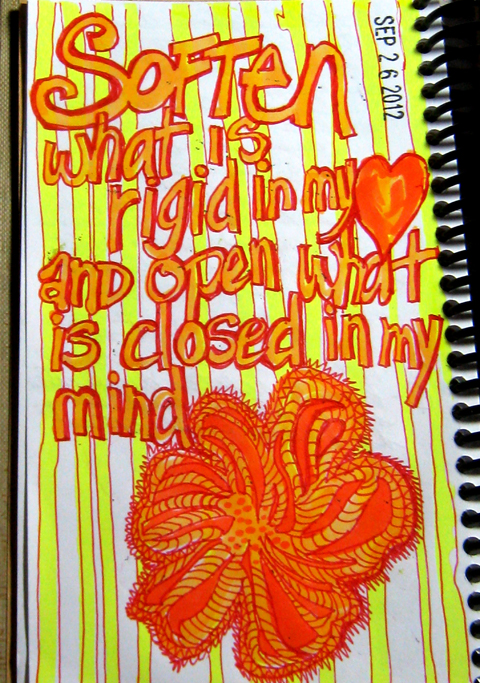 SOFTEN
what is
rigid in my
and open what
is closed in my
mind
SEP 26 2012